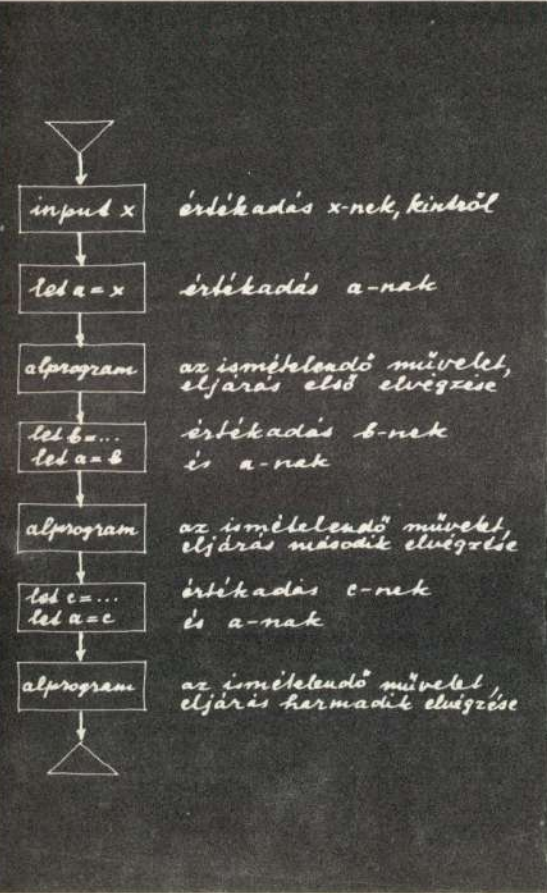 input x értékadás x-nek, kintről
let a = x értékadás a-nak
alprogram az ismételendő művelet,
eljárás első elvégzése
let b = ... értékadás b-nek
let a = b és a-nak
alprogram az ismételendő művelet,
eljárás második elvégzése
let c = ... értékadás c-nek
let a = c és a-nak
alprogram az ismételendő művelet,
eljárás harmadik elvégzése